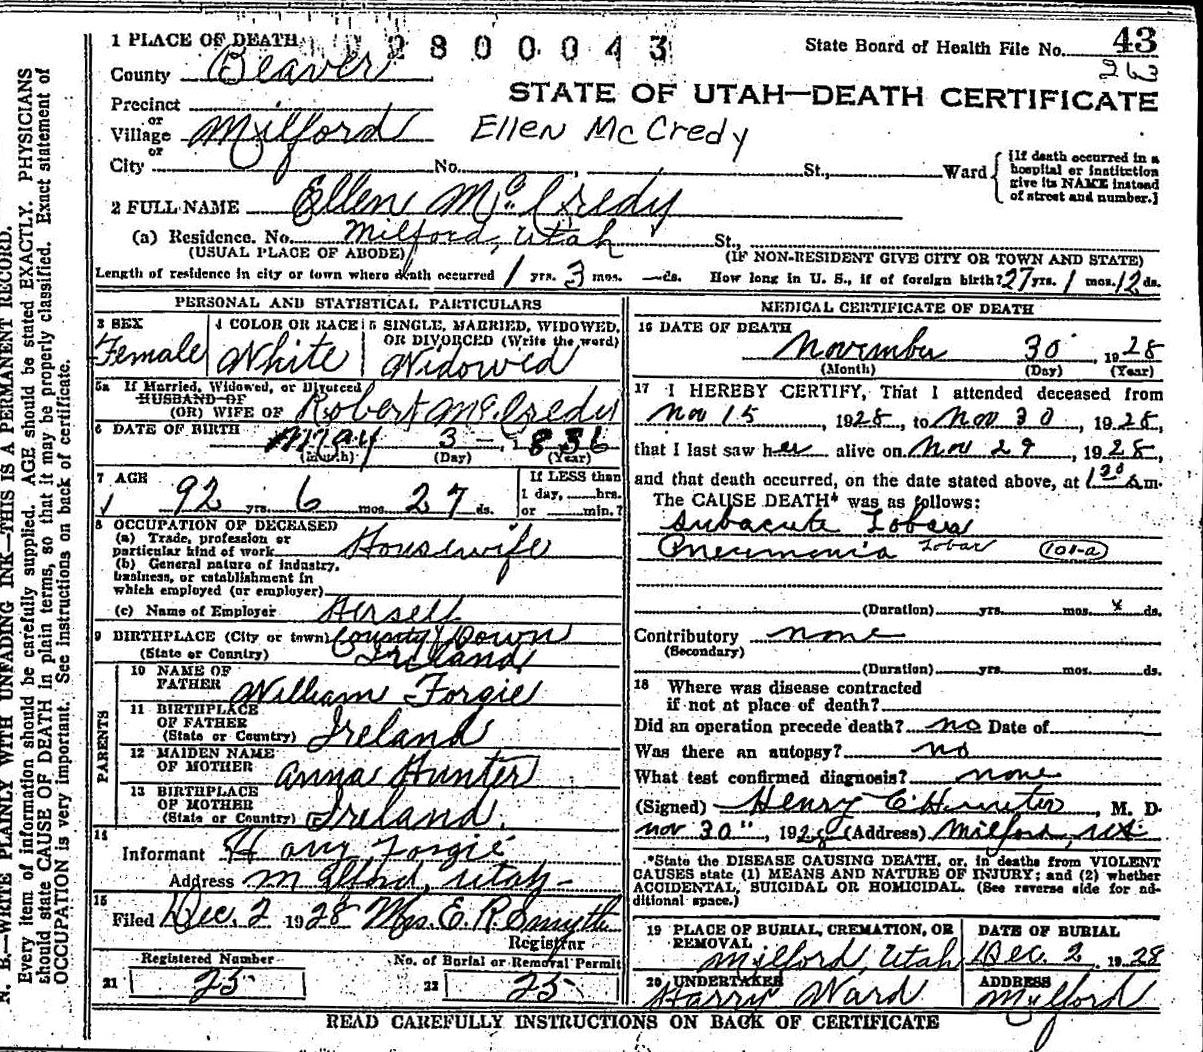 1 PLACE OF DEATH 2800043 State Board of Health File No. 43
County Beaver
STATE OF UTAH—DEATH CERTIFICATE
Precinct
or
Village Milford Ellen McCredy
or
City No. St., Ward {[If death occurred in a hospital or institution give its NAME instead of street and number.]
2 FULL NAME Ellen Mc.Credy
(a) Residence. No. Milford, Utah St.,
(USUAL PLACE OF ABODE) (IF NON-RESIDENT GIVE CITY OR TOWN AND STATE)
Length of residence in city or town where death occurred 1 yrs. 3 mos. — ds. How long in U. S., if of foreign birth? 27 yrs. 1 mos. 12 ds.
PERSONAL AND STATISTICAL PARTICULARS
3 SEX Female
4 COLOR OR RACE White
5 SINGLE, MARRIED, WIDOWED, OR DIVORCED (Write the word) Widowed
5a If Married, Widowed, or Divorced
HUSBAND OF
(OR) WIFE OF Robert Mc.Credy
6 DATE OF BIRTH May 3 – 1836
(Month) (Day) (Year)
7 AGE 92 yrs. 6 mos. 27 ds.
If LESS than 1 day, hrs. or min.?
8 OCCUPATION OF DECEASED
(a) Trade, profession or particular kind of work Housewife
(b) General nature of industry, business, or establishment in which employed (or employer)
(c) Name of Employer Herself
9 BIRTHPLACE (City or town) County Down
(State or Country) Ireland
PARENTS
10 NAME OF FATHER William Forgie
11 BIRTHPLACE OF FATHER (State or Country) Ireland
12 MAIDEN NAME OF MOTHER Anna Hunter
13 BIRTHPLACE OF MOTHER (State or Country) Ireland.
14
Informant Harry Forgie
Address Milford, Utah
15
Filed Dec. 2 1928 Mrs. E. R. Smyth
Registrar
Registered Number No. of Burial or Removal Permit
21 25 22 25
MEDICAL CERTIFICATE OF DEATH
16 DATE OF DEATH
November 30, 1928
(Month) (Day) (Year)
17 I HEREBY CERTIFY, That I attended deceased from
Nov 15, 1928, to Nov 30, 1928,
that I last saw her alive on Nov 29, 1928,
and that death occurred, on the date stated above, at 1 30 a m.
The CAUSE DEATH* was as follows:
Subacute Lobar
Pneumonia Lobar 101-a
(Duration) yrs. mos. ds.
Contributory none
(Secondary)
(Duration) yrs. mos. ds.
18 Where was disease contracted
if not at place of death?
Did an operation precede death? no Date of
Was there an autopsy? no
What test confirmed diagnosis? none
(Signed) Henry C Hunter, M. D.
Nov 30", 1928 (Address) Milford, Ut
*State the DISEASE CAUSING DEATH, or, in deaths from VIOLENT
CAUSES state (1) MEANS AND NATURE OF INJURY; and (2) whether
ACCIDENTAL, SUICIDAL OR HOMICIDAL. (See reverse side for ad-
ditional space.)
19 PLACE OF BURIAL, CREMATION, OR REMOVAL Milford, Utah
DATE OF BURIAL Dec. 2 1928
20 UNDERTAKER Harry Ward
ADDRESS Milford
READ CAREFULLY INSTRUCTIONS ON BACK OF CERTIFICATE
N. B.—WRITE PLAINLY WITH UNFADING INK—THIS IS A PERMANENT RECORD.
Every item of information should be carefully supplied. AGE should be stated EXACTLY. PHYSICIANS
should state CAUSE OF DEATH in plain terms, so that it may be properly classified. Exact statement of
OCCUPATION is very important. See instructions on back of certificate.